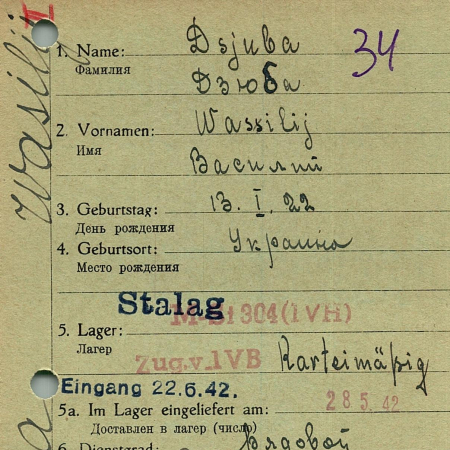 II
Wasilij
1. Name: Dsjuba
34
Фамилия
Дзюба
2. Vornamen: Wassilij
Имя
Василий
3. Geburtstag: 13. I. 22
День рождения
4. Geburtsort: Украина
Место рождения
Stalag
M-St 304 (IVH)
5. Lager:
Лагер
Zug. v. IVB Karteimäßig
Eingang 22.6.42.
28 5. 42
5a. Im Lager eingeliefert am:
Доставлен в лагер (число)
6. Dienstgrad: рядовой